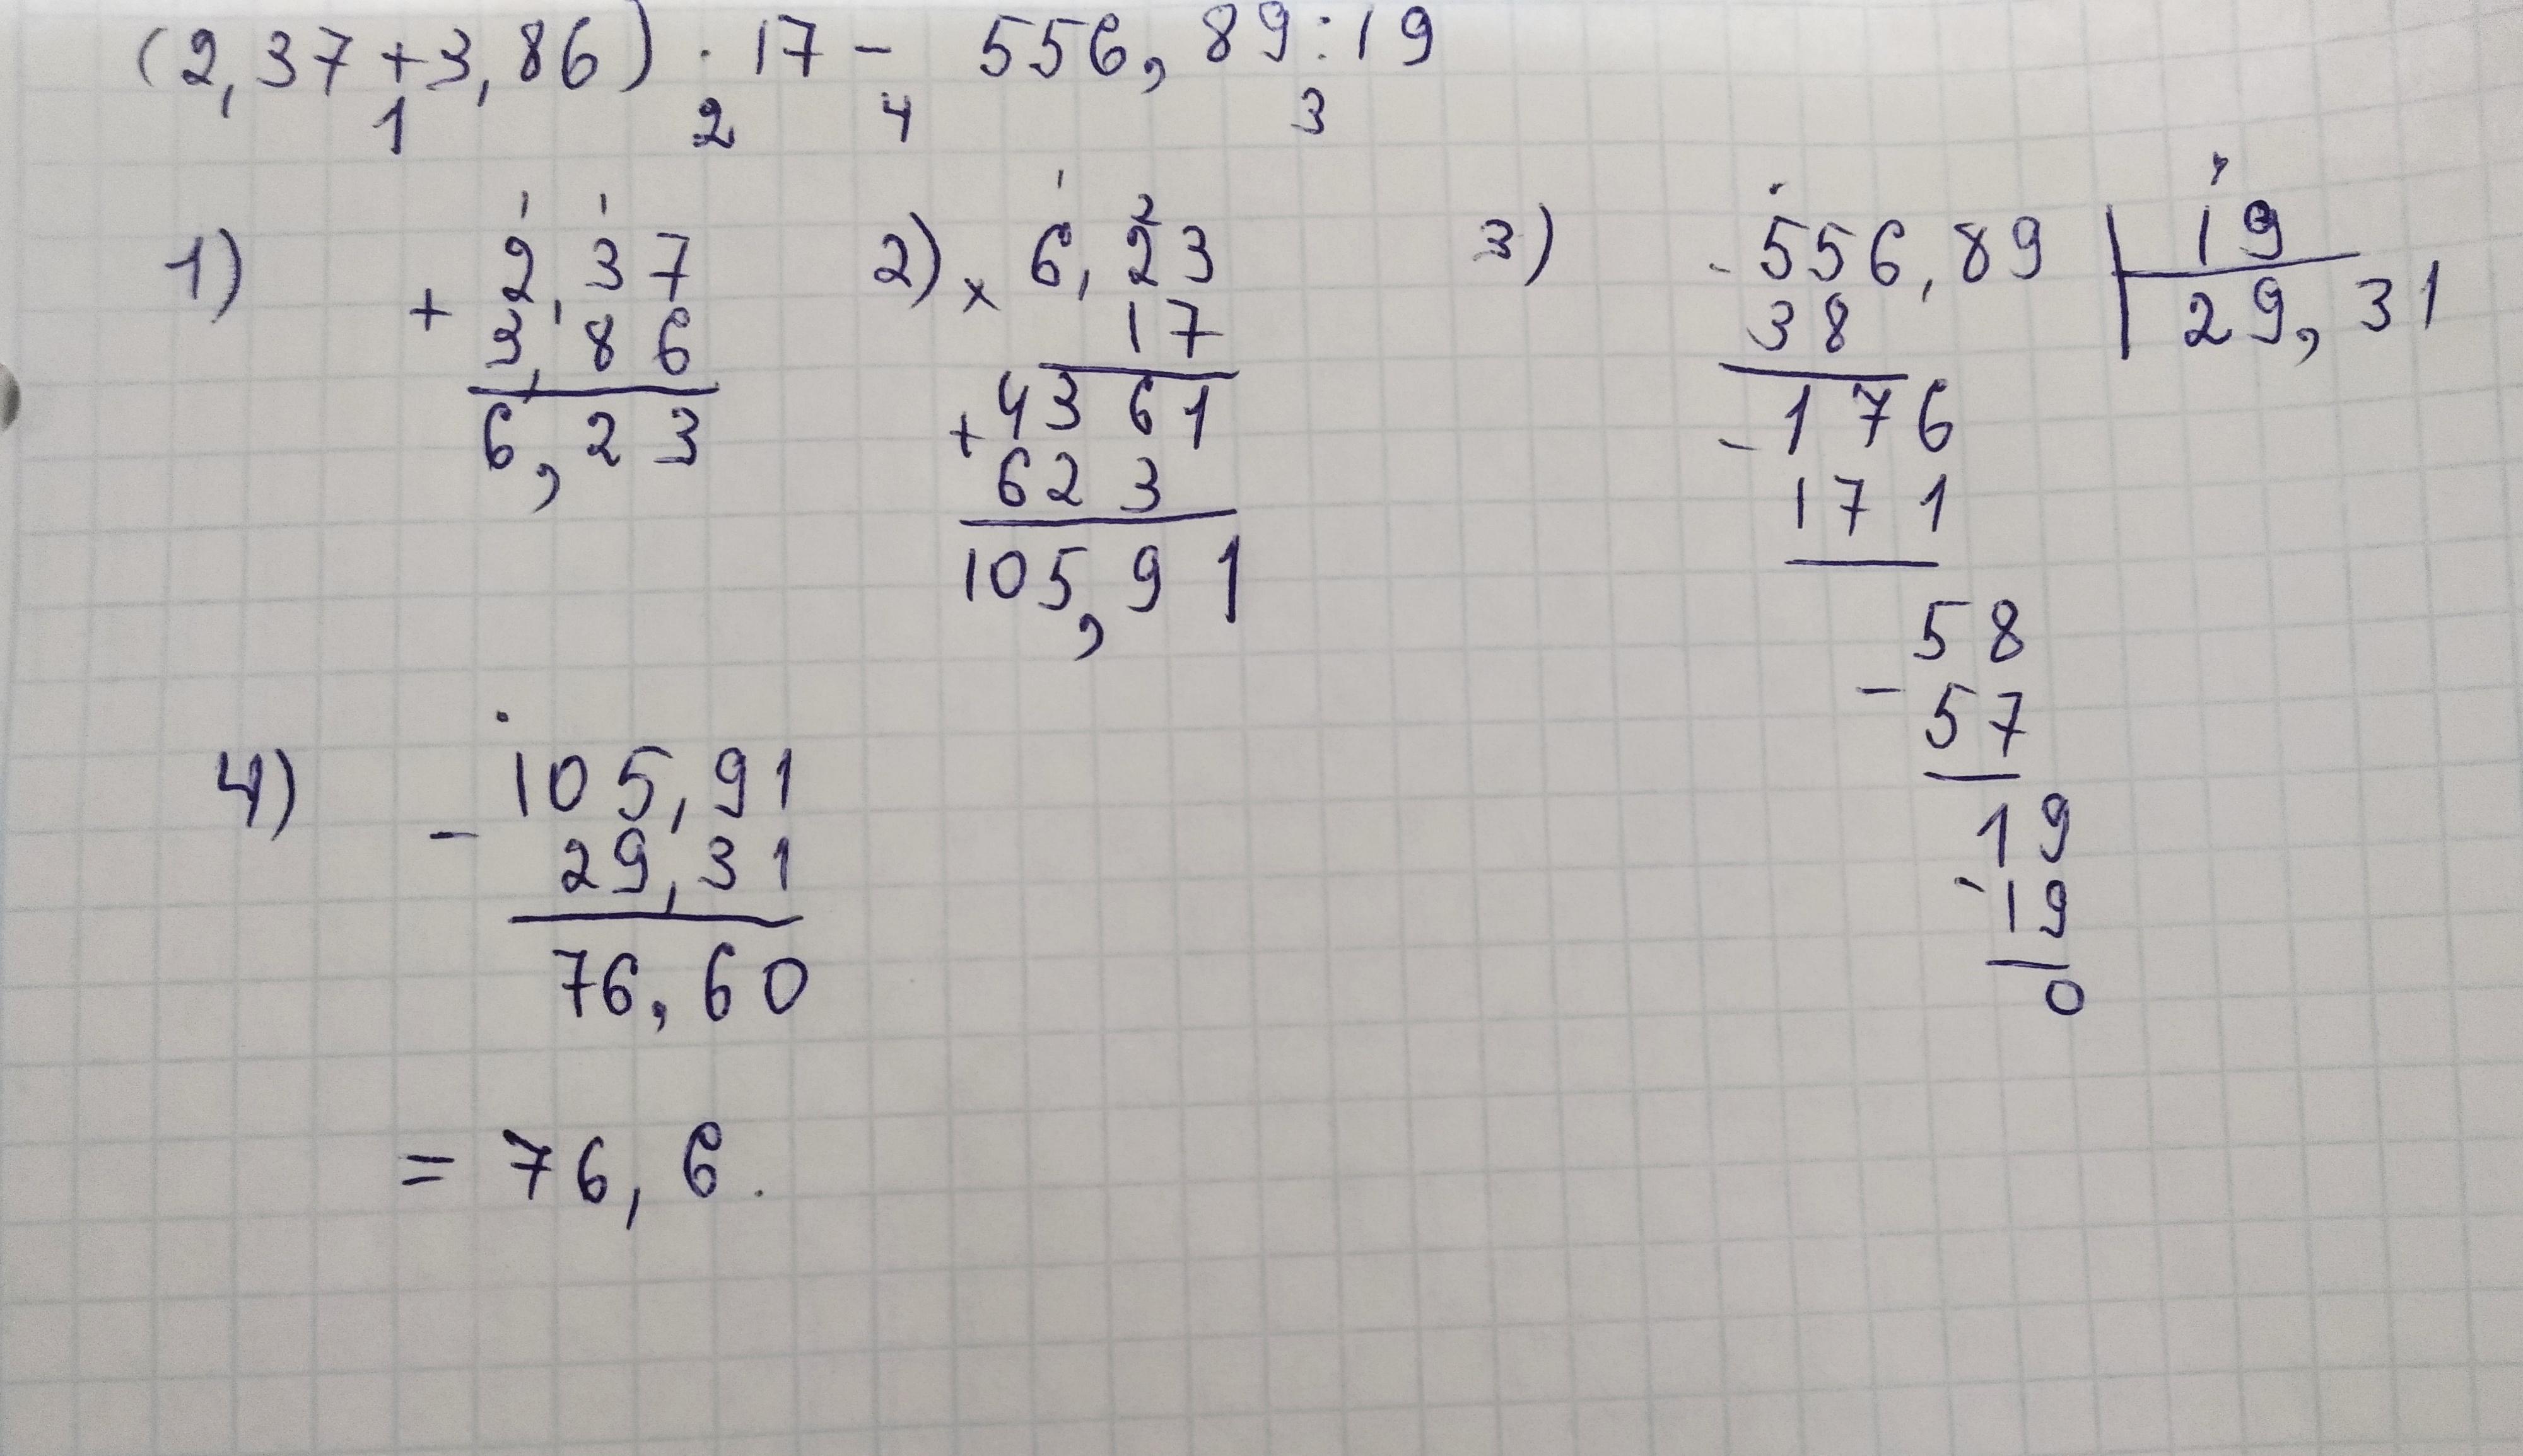 (2,37+3,86) · 17 - 556,89:19
1 2 4 3
1) 1 1
+ 2,37
3,86
6,23
2) 1 2
× 6,23
17
+ 4361
623
105,91
3) - 556,89 | 19
38 | 29,31
- 176
171
58
- 57
19
- 19
0
4) - 105,91
29,31
76,60
= 76,6.